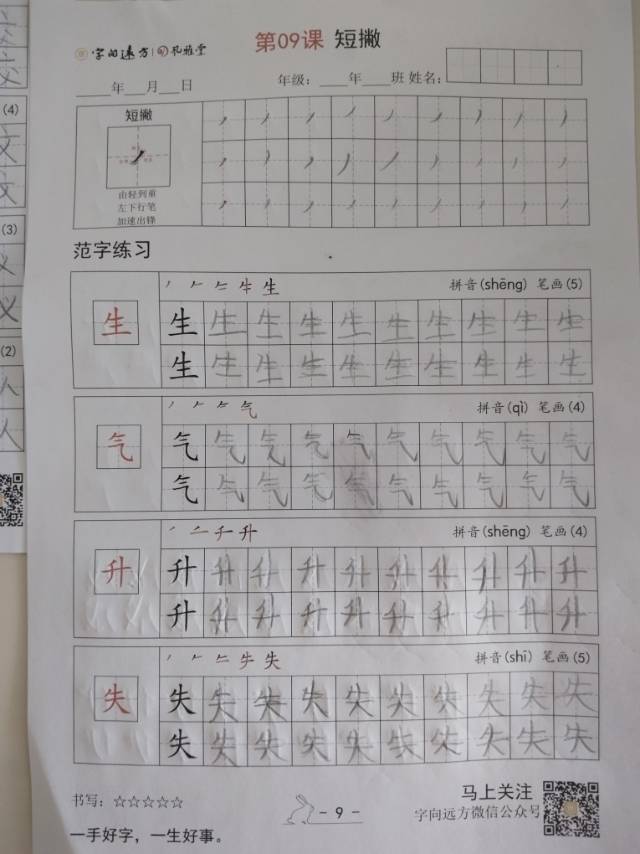 字向远方 孔雅堂
第09课 短撇
年 月 日
年级： 年 班 姓名：
短撇
由轻到重
左下行笔
加速出锋
范字练习
生 拼音(shēng) 笔画(5)
生 生 生 生 生 生 生 生 生 生
生 生 生 生 生 生 生 生 生 生
气 拼音(qì) 笔画(4)
气 气 气 气 气 气 气 气 气 气
气 气 气 气 气 气 气 气 气 气
升 拼音(shēng) 笔画(4)
升 升 升 升 升 升 升 升 升 升
升 升 升 升 升 升 升 升 升 升
失 拼音(shī) 笔画(5)
失 失 失 失 失 失 失 失 失 失
失 失 失 失 失 失 失 失 失 失
书写：☆☆☆☆☆
- 9 -
马上关注
字向远方微信公众号
一手好字，一生好事。
(4)
文
文
(3)
义
义
(2)
人
人